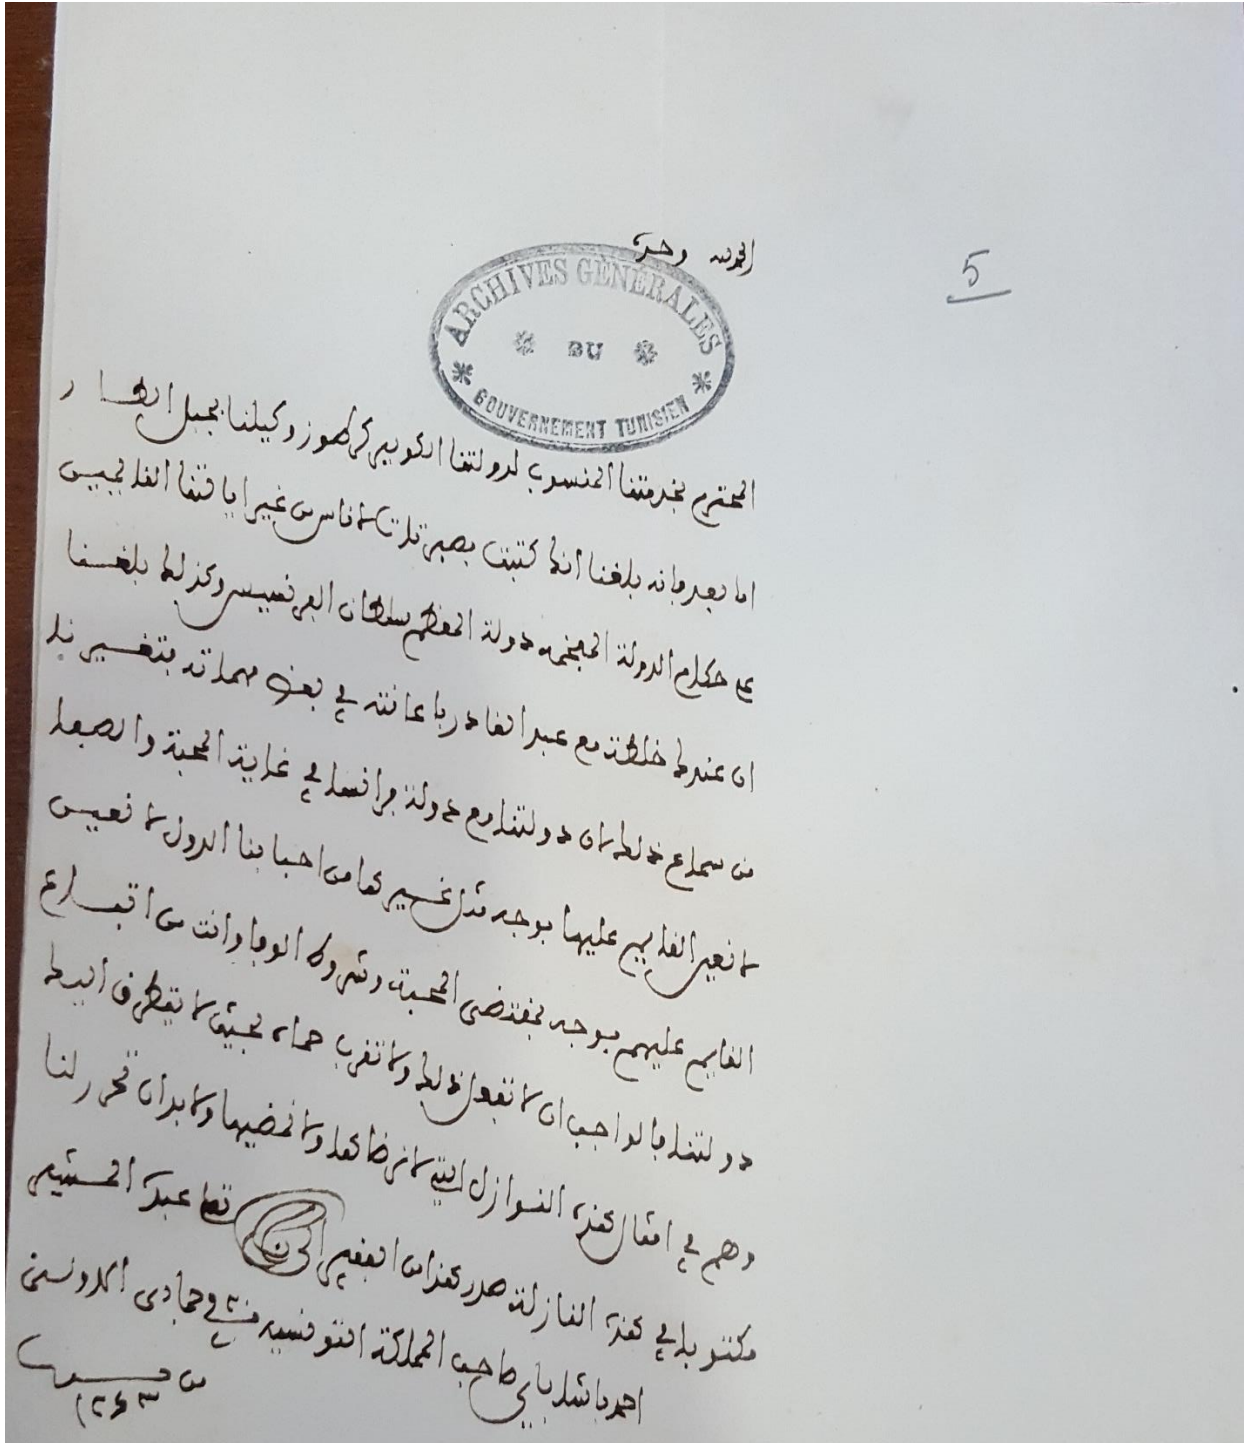 الحمد لله وحده
5
ARCHIVES GÉNÉRALES
DU
GOUVERNEMENT TUNISIEN
المحترم بخدمتنا المنسوب لدولتنا الكوبير وكيلنا بجبل الطار
اما بعد فانه بلغنا انك كتبت لاناس من غير اياقتنا القاليجيين
على حكام الدولة المفخمه دولة المعظم سلطان الفرنسيس وكذلك بلغنا
ان عندك خلطة مع عبد القادر باعانته في بعض مهماته فتغيرنا
من سماع ذلك لان دولتنا مع دولة فرانسا في غاية المحبة والصفا
لا نعين القايم عليها بوجه مثل غيرها من احبابنا الدول لا نعين
القايم عليهم بوجه بمقتضى المحبة وشروط الوفا وانت من اتباع
دولتنا فالواجب ان لا تفعل ذلك ولا تقرب حماه بحيث لا يتطرق اليك
وهم في امثال هذه النوازل التي لا نرضاها ولا نمضيها ولا بد ان تحرر لنا
مكتوبا في هذه النازلة صدر هذا من الفقير الى ربه تعالى عبده المشير
احمد باشا باي صاحب المملكة التونسيه في جمادى الاولى سنة
من ١٢٦٣